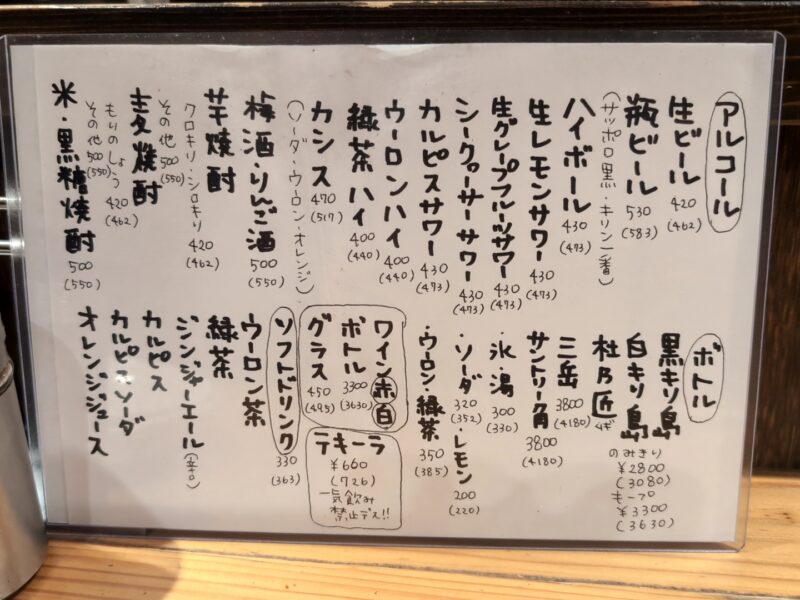 アルコール
生ビール 420 (462)
瓶ビール 530 (583)
(サッポロ黒・キリン一番)
ハイボール 430 (473)
生レモンサワー 430 (473)
生グレープフルーツサワー 430 (473)
シークワーサーサワー 430 (473)
カルピスサワー 430 (473)
ウーロンハイ 400 (440)
緑茶ハイ 400 (440)
カシス 470 (517)
(ソーダ・ウーロン・オレンジ)
梅酒・りんご酒 500 (550)
芋焼酎
クロキリ・シロキリ 420 (462)
その他 500 (550)
麦焼酎
もりのしょう 420 (462)
その他 500 (550)
米・黒糖焼酎 500 (550)
ボトル
黒キリ島
白キリ島
杜乃匠 ムギ
のみきり
¥2800
(3080)
キープ
¥3300
(3630)
三岳 3800 (4180)
サントリー角 3800 (4180)
・氷・湯 300 (330)
・ソーダ 320 (352)
・レモン 200 (220)
・ウーロン・緑茶 350 (385)
ワイン赤白
ボトル 3300 (3630)
グラス 450 (495)
テキーラ
¥660
(726)
一気飲み
禁止デス!!
ソフトドリンク 330 (363)
ウーロン茶
緑茶
ジンジャーエール(辛口)
カルピス
カルピスソーダ
オレンジジュース